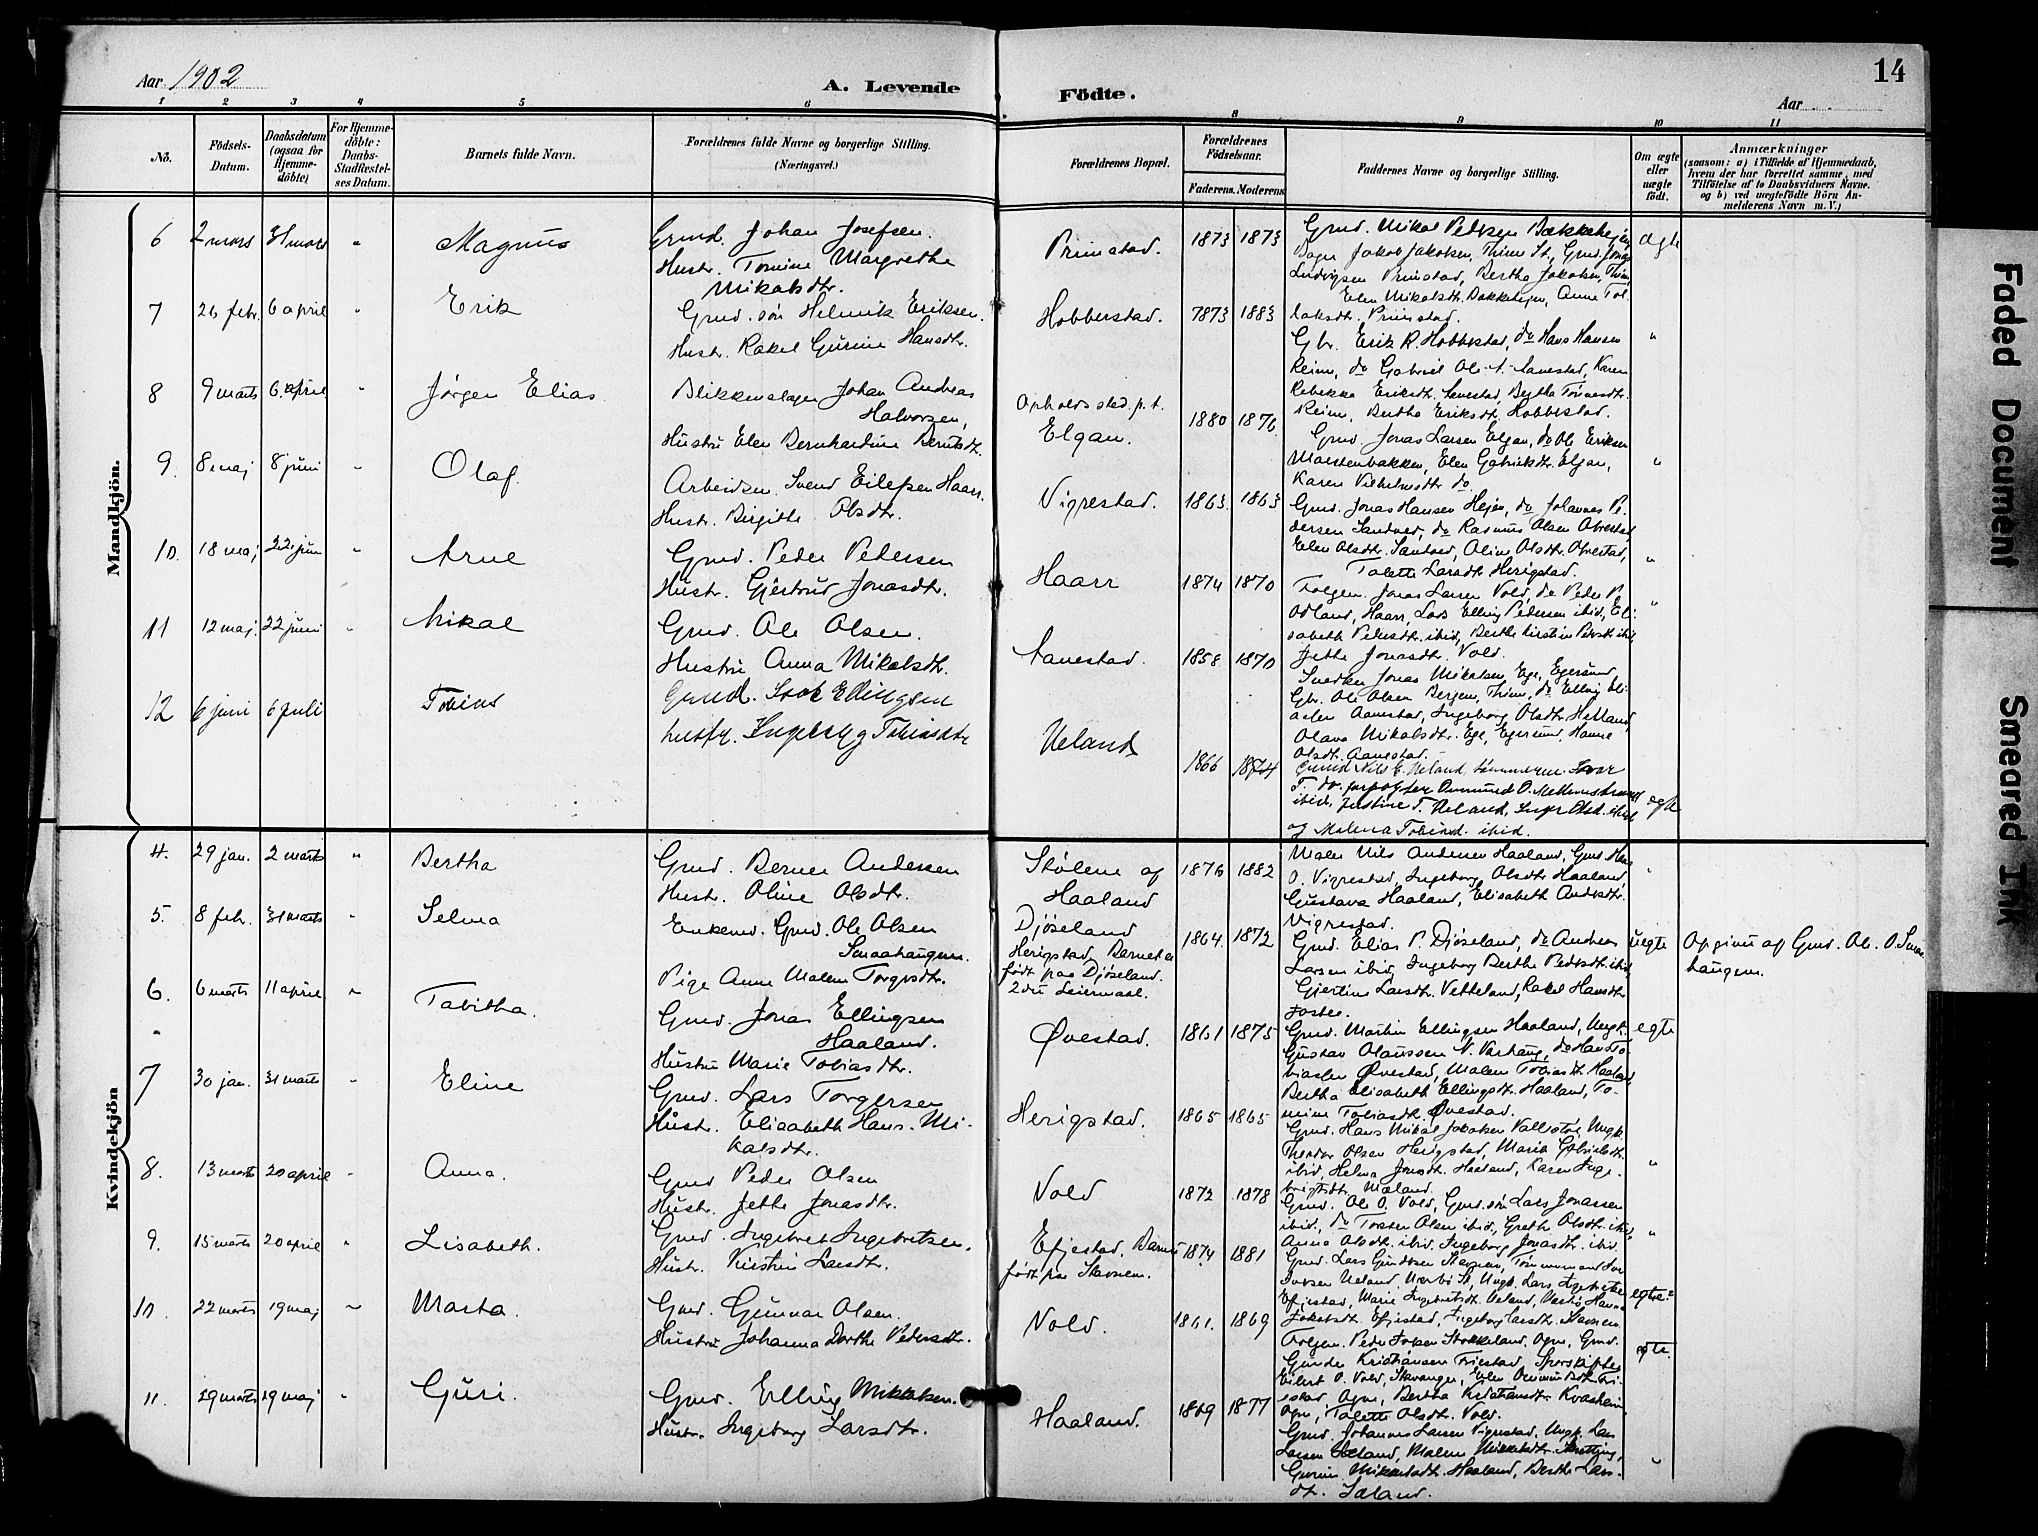 Aar 1902
A. Levende
Födte.
Aar
14
1 2 3 4 5 6 8 9 10 11
No.
Födsels-
Datum.
Daabsdatum
(ogsaa for
Hjemme-
döbte)
For Hjemme-
döbte:
Daabs-
Stadfæstel-
ses Datum.
Barnets fulde Navn.
Forældrenes fulde Navne og borgerlige Stilling.
(Næringsvei.)
Forældrenes Bopæl.
Forældrenes
Födselsaar.
Faderens. Moderens
Faddernes Navne og borgerlige Stilling.
Om ægte
eller
uægte
födt.
Anmærkninger
(saasom: a) i Tilfælde af Hjemmedaab,
hvem der har forrettet samme, med
Tilföielse af to Daabsvidners Navne.
og b) ved uægtefödte Börn An-
melderens Navn m. V.)
Mandkjön.
6 2 mars 31 mars " Magnus
Grmd. Johan Josefsen.
Hustr. Tomine Margrethe
Mikalsdtr.
Primstad. 1873 1873
Grmd. Mikal Pedersen Bakkehejen
Jakob Jakobsen, Thime St, Grmd. Jonas
Ludvigsen Primstad, Bertha Jakobsen, Thime
Elen Mikalsdtr. Bakkehejen, Anne Tol-
laksdt. Primstad.
ægte
7 26 febr. 6 april " Erik
Grmd. søn Helmik Eriksen.
Hustr. Rakel Gurine Hansdtr.
Hobberstad. 7873 1883
Gbr. Erik R. Hobbestad, do Hans Hansen
Reime, do Gabriel Ols. A. Aanestad, Karen
Rebekka Eriksdt. Aanestad, Bertha Tonasdtr.
Reime, Bertha Eriksdt. Hobbestad.
"
8 9 marts 6. april " Jørgen Elias
Blikkenslager Johan Andreas
Halvorsen,
Hustru Elen Bernhardine Berntsdt.
Opholdssted p. t.
Elgan. 1880 1876
Grmd. Jonas Larsen Elgan, do Ole Eriksen
Elen Gabrielsdtr. Elgan,
Karen Vilhelmsdtr do
"
9. 8 maj 8 juni " Olaf
Arbeidsm. Svend Eilefsen Haar.
Hustr. Birgitte Olsdtr.
Vigrestad. 1863 1863
Grmd. Jonas Hansen do Johannes Pe-
dersen Sandved, do Rasmus Olsen Øvrestad,
Elen Olsdtr. Sandved, Oline Olsdtr. Øvrestad,
Talette Larsdtr Herigstad.
"
10. 18 maj 22 juni " Arne
Grmd. Peder Pedersen
Hustr. Gjertrud Jonasdtr.
Haarr 1874 1870
Jonas Larsen Vold, do Peder P.
Odland, Haarr, Lars Elling Pedersen ibid, Eli-
sabeth Pedersdtr. ibid, Berthe Kirstine Pedersdt. ibid,
Jette Jonasdtr. Vold.
"
11 12 maj. 22 juni " Mikal
Grmd. Ole Olsen.
Hustru Anna Mikalsdtr.
Aanestad. 1858 1870
Snedker Jonas Mikalsen, Ege, Egersund,
Gbr. Ole Olsen Bergem, Thime, do Elling Eli-
Aanestad, Ingeborg Olsdtr. Helland,
Olava Mikalsdtr. Ege, Egersund, Hanne
Olsdt. Aanestad.
12 6 juni 6 juli Tobias
Grmd. Ellingsen
hustru. Ingeborg Tobiasdtr
Ueland 1866 1874
Grmd Nils E. Ueland, tømmerm.
Justine T. Ueland, Inger Olsd. ibid
og Malena Tobiasd. ibid.
ægte
Kvindekjön
4. 29 jan. 2 marts " Bertha
Grmd. Berner Andersen
Hustr. Oline Olsdtr.
Stølene af
Haaland 1876 1882
Maler Nils Andersen Haaland, Grmd Hans
O. Vigrestad, Ingeborg Olsdtr. Haaland,
Gustava Haaland, Elisabeth Andersdtr.
Vigrestad.
"
5. 8 feb. 31 marts " Selma
Enkemd. Grmd. Ole Olsen
Smaahaugene.
Pige Anne Malene Torgersdtr.
Djøseland
Herigstad. Barnet er
født paa Djøseland.
2det Leiermaal.
1864. 1872
Grmd. Elias P. Djøseland, do Andreas
Larsen ibid, Ingeborg Berthe Pedersdt. ibid,
Gjertine Larsdtr. Vetteland, Rakel Hansdtr.
uægte
Opgiven af Grmd. Ole O. Smaa-
haugene.
6. 6 marts 11 april " Tabitha.
Grmd. Jonas Ellingsen
Haaland.
Hustru Marie Tobiasdtr.
Øvestad. 1861 1875
Grmd. Martin Ellingsen Haaland, Ungk.
Gustav Olaussen N. Varhaug, do Hans To-
biassen Øvestad, Malene Tobiasdt. Haaland,
Bertha Elisabeth Ellingsdt. Haaland, To-
mine Tobiasdt. Øvestad.
egte
7 30 jan. 31 marts " Eline
Grmd. Lars Torgersen
Hustr. Elisabeth Hans. Mi-
kalsdtr.
Herigstad. 1865 1865
Grmd. Hans Mikal Jakobsen Ungk.
Theodor Olsen Herigstad, Maria Gabrielsdt.
ibid, Helene Jonasdt. Haaland, Karen Inge-
brigtsdt. Mæland.
"
8. 13 marts 20 april " Anna.
Grmd Peder Olsen
Hustr. Jette Jonasdtr.
Vold 1872 1878
Grmd. Ole O. Vold, Grmd. søn Lars Jonassen
ibid, do Torsten Olsen ibid, Grethe Olsdt. ibid,
Anna Olsdt. ibid, Ingeborg Jonasdtr. ibid.
"
9. 15 marts 20 april " Lisabeth.
Grmd. Ingebret Ingebretsen.
Hustr. Kirstine Larsdtr.
Efjestad. Barnet
født paa Stavnem. 1874 1881
Grmd. Lars Gundersen Stavnem,
Ueland, Nærbø St, Ungk. Lars Ingebretsen
Efjestad, Marie Ingebretsdt. Ueland,
Jakobsdt. Efjestad, Ingeborg Larsdt. Stavnem.
egte
10. 22 marts 19 maj " Marta.
Grmd. Gunnar Olsen.
Hustru Johanna Dorthe Pedersdtr.
Vold. 1861. 1869
Peder Stokkeland, Ogne, Grmd.
Gunder Kristiansen Friestad,
Eilert O. Vold, Stavanger, Elen
Ogne, Bertha Kristiansdt. Kvasheim
Ogne, Talette Olsdt. Vold.
egte.
11. 29 marts 19 maj " Guri.
Grmd. Elling Mikkelsen.
Hustr. Ingeborg Larsdtr.
Haaland. 1869 1877
Grmd. Johannes Larsen Vigrestad, Ungk. Lars
Larsen Sæland, Malene Mikkelsdtr.
Gurine Mikkelsdt. Haaland, Berthe Lars-
dt. Sæland.
"
Faded Document
Smeared Ink